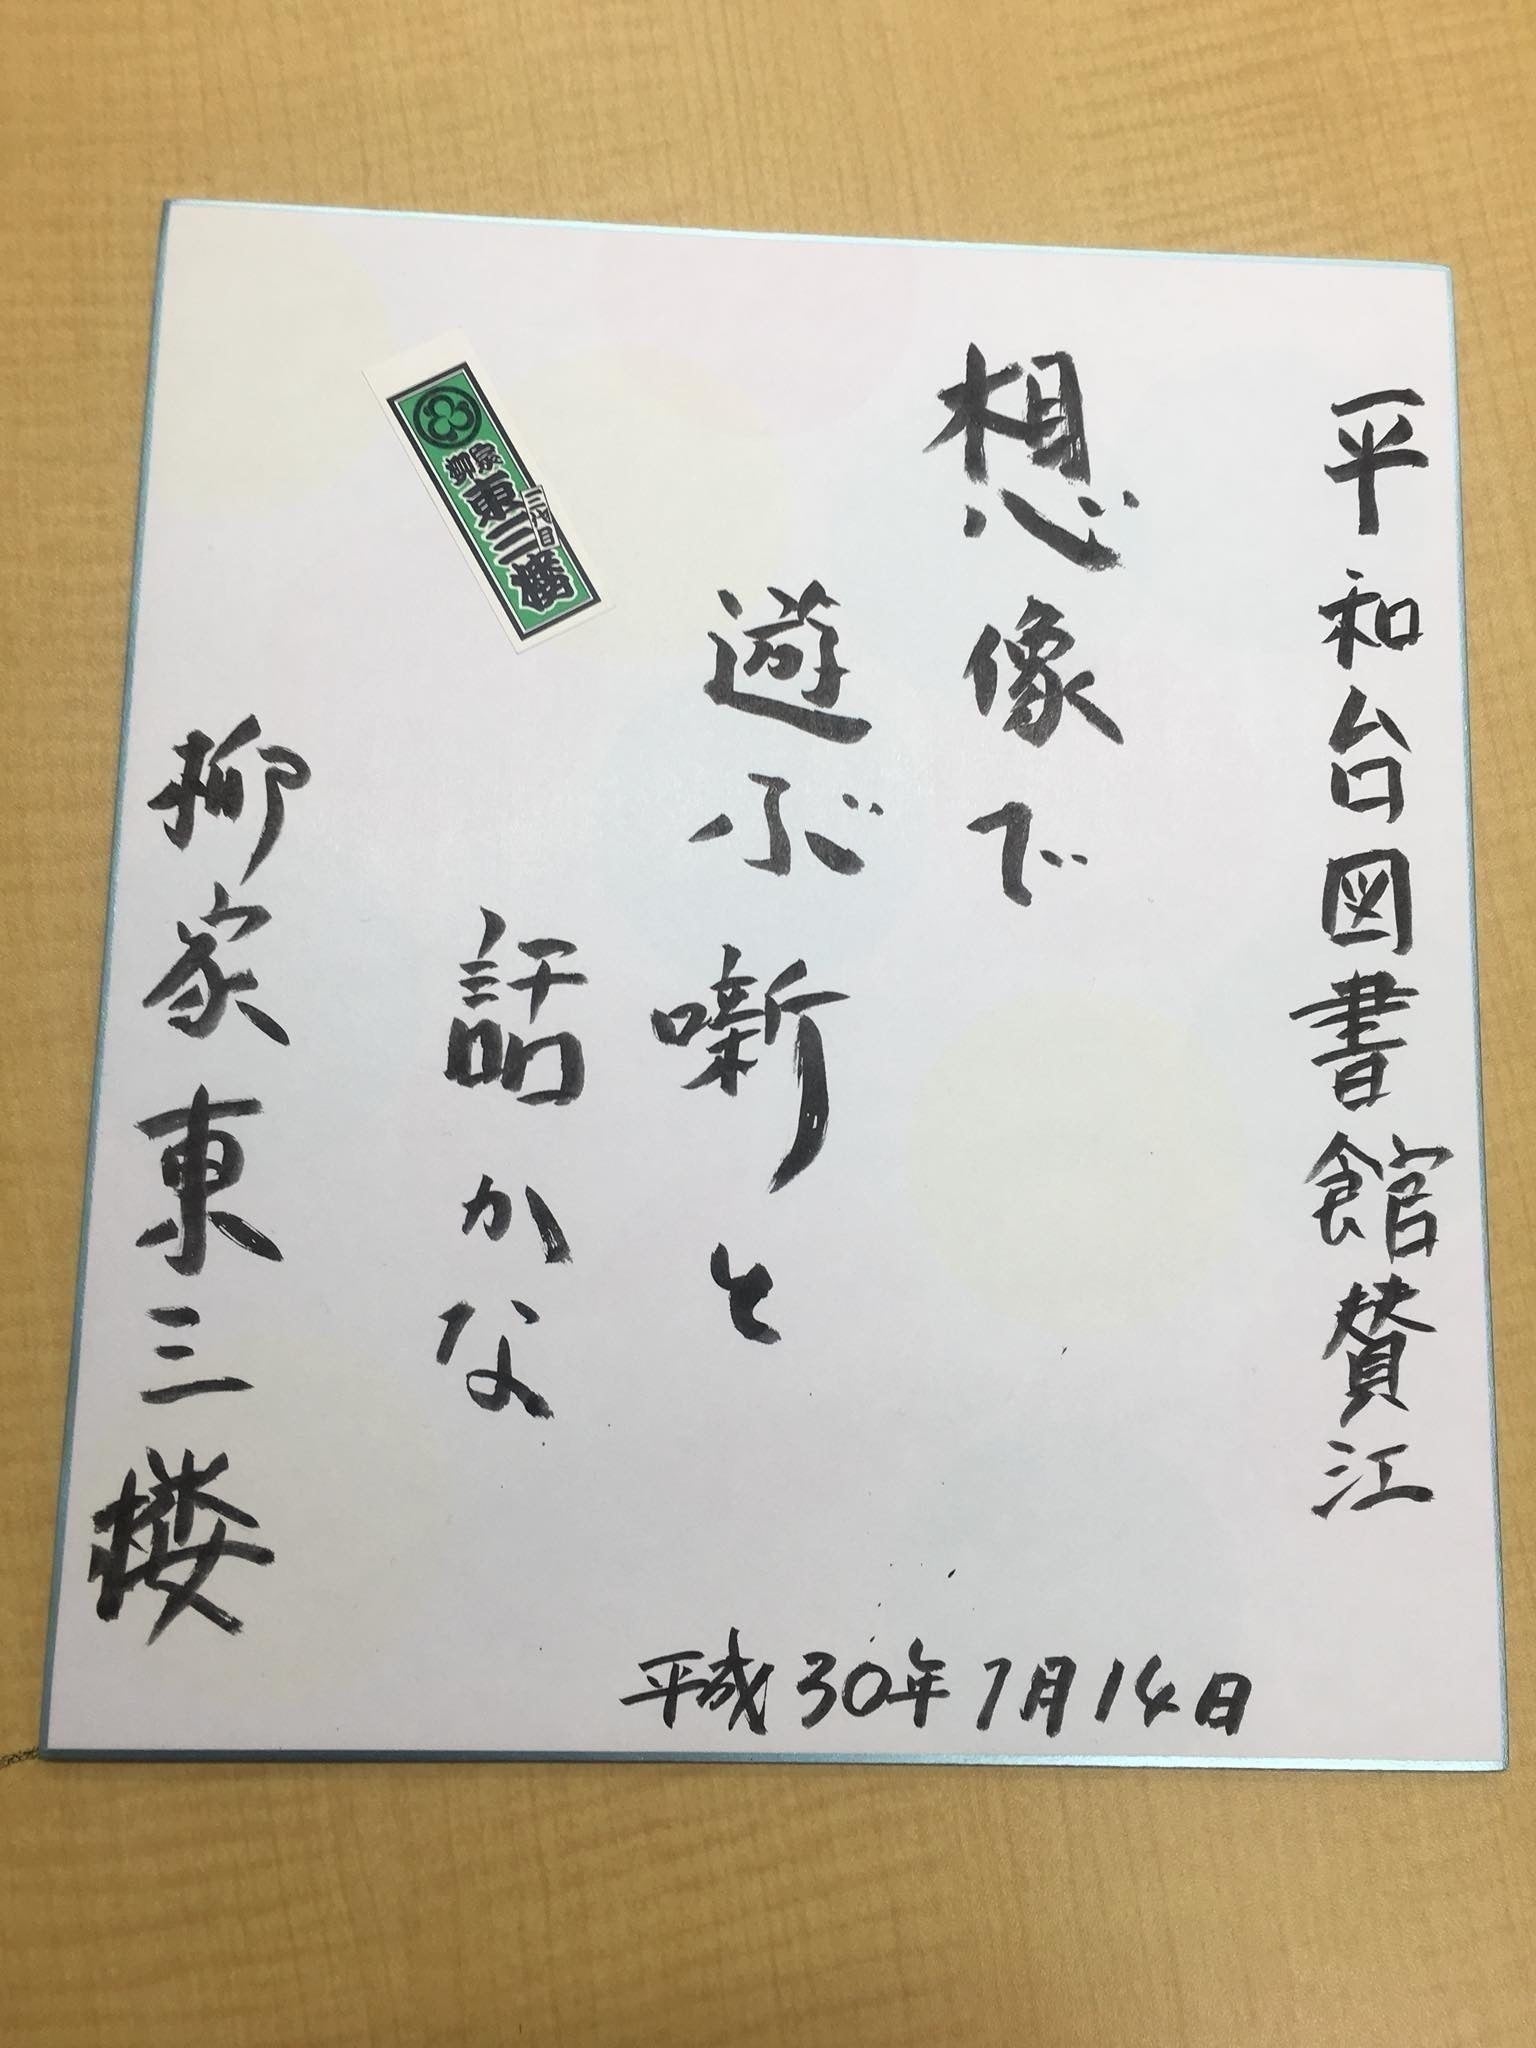 平和台図書館賛江
想像で
遊ぶ噺と
話かな
柳家東三楼
平成30年7月14日
柳家
三代目
東三楼